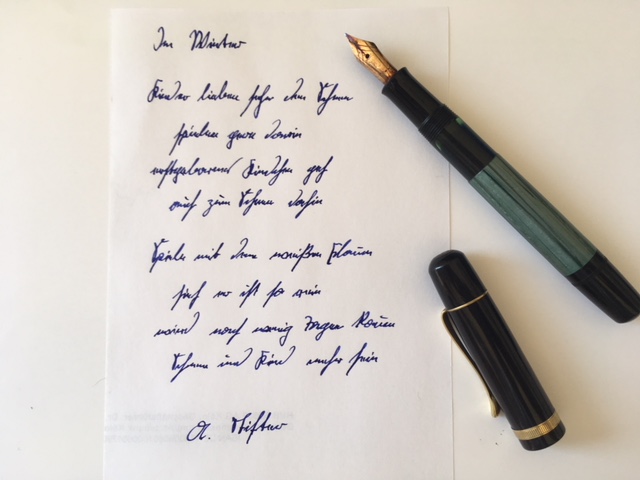 Im Winter
Kinder lieben sehr den Schnee
spielen gern darin
erstgeborenes Kindchen geh
auch zum Schnee dahin
Spiele mit dem weißen Flaum
sieh er ist so rein
wird nach wenig Tagen kaum
Schnee und Kind mehr sein
A. Stifter